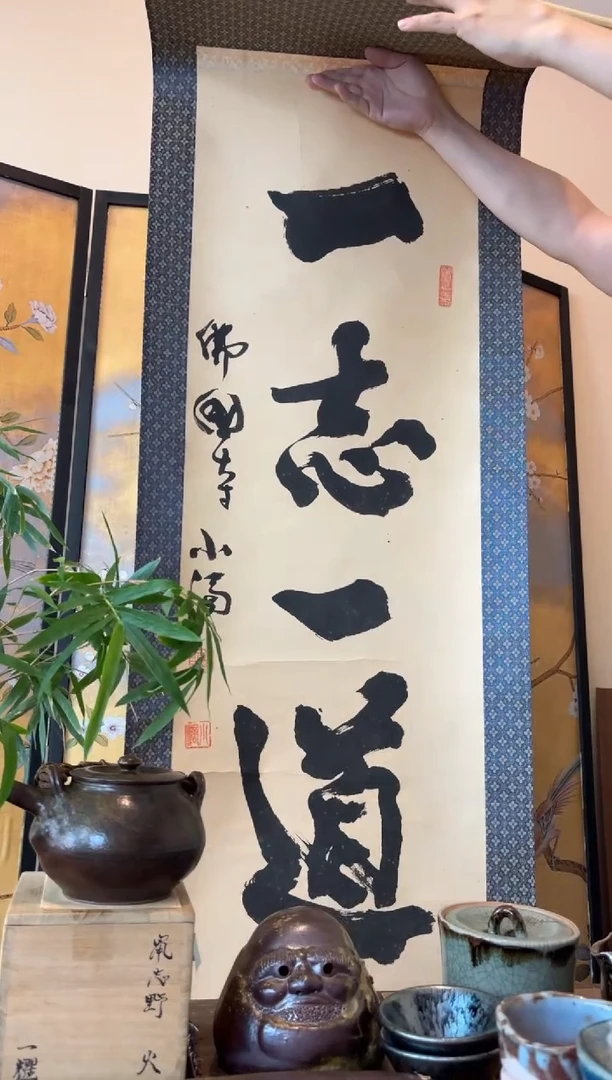 一志一道
佛國寺 小滴
鼠志野 火
一耀